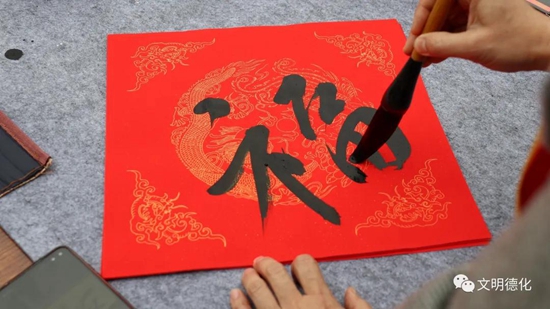 福
文明德化